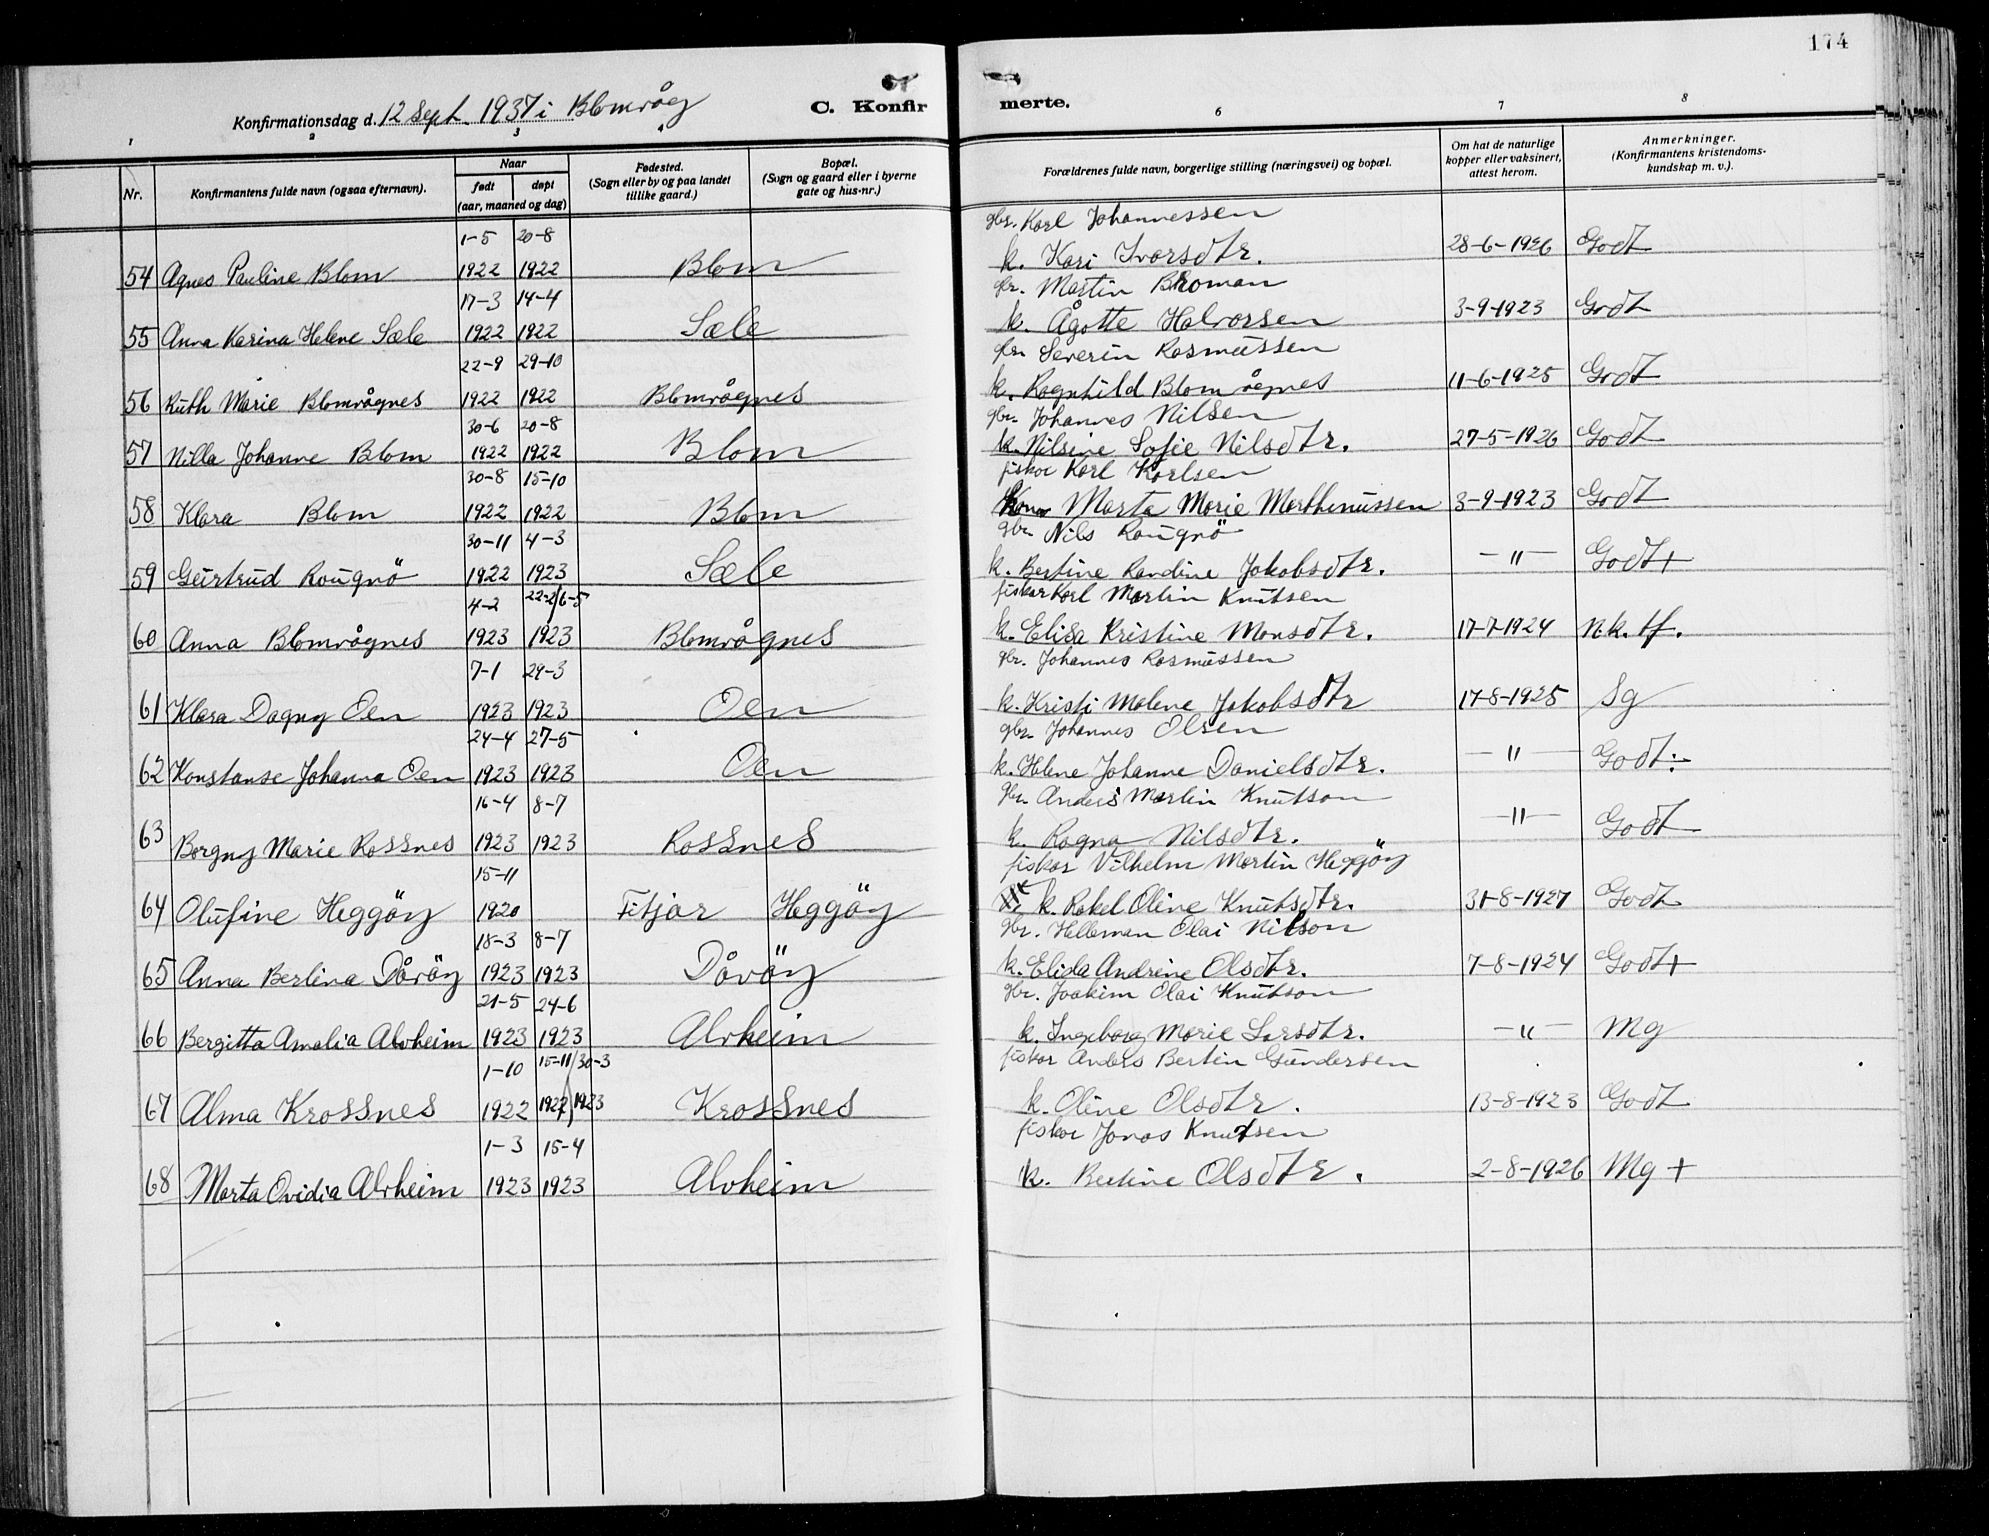 174
Konfirmationsdag d. 12 Sept. 1937 i Blomvåg
C. Konfirmerte.
1 2 3 4 6 7 8
Nr.
Konfirmantens fulde navn (ogsaa efternavn).
Naar
født døpt
(aar, maaned og dag)
Fødested.
(Sogn eller by og paa landet
tillike gaard.)
Bopæl.
(Sogn og gaard eller i byerne
gate og hus-nr.)
Forældrenes fulde navn, borgerlige stilling (næringsvei) og bopæl.
Om hat de naturlige
kopper eller vaksinert,
attest herom.
Anmerkninger.
(Konfirmantens kristendoms-
kundskap m. v.).
1-5 20-8 gbr. Karl Johannessen
54 Agnes Pauline Blom 1922 1922 Blom k. Kari Ivarsdtr. 28-6-1926 Godt
17-3 14-4 fkr. Martin Broman
55 Anna Karina Helene Sæle 1922 1922 Sæle k. Ågotte Halvorsen 3-9-1923 Godt
22-9 29-10 fkr. Severin Rasmussen
56 Ruth Marie Blomvågnes 1922 1922 Blomvågnes k. Ragnhild Blomvågnes 11-6-1925 Godt
30-6 20-8 gbr. Johannes Nilsen
57 Nilla Johanne Blom 1922 1922 Blom k. Nilsine Sofie Nilsdtr. 27-5-1926 Godt
30-8 15-10 fisker Karl Karlsen
58 Klara Blom 1922 1922 Blom Kona Marta Marie Marthinussen 3-9-1923 Godt
30-11 4-3 gbr. Nils Rougnö
59 Gurtrud Rougnö 1922 1923 Sæle k. Bertine Randine Jakobsdtr. —"— Godt+
4-2 22-2/6-5 fisker Karl Martin Knutsen
60 Anna Blomvågnes 1923 1923 Blomvågnes k. Elisa Kristine Monsdtr. 17-7-1924 n.k. tf.
7-1 29-3 gbr. Johannes Rasmussen
61 Klara Dagny Oen 1923 1923 Oen k. Kristi Malene Jakobsdtr 17-8-1925 Sg
24-4 27-5 gbr. Johannes Olsen
62 Konstanse Johanna Oen 1923 1923 Oen k. Helene Johanne Danielsdtr. —"— Godt÷
16-4 8-7 gbr. Anders Martin Knutson
63 Borgny Marie Rossnes 1923 1923 Rossnes k. Ragna Nilsdtr. —"— Godt
15-11 fisker Vilhelm Martin Heggöy
64 Olufine Heggöy 1920 Fitjar Heggöy k. Rakel Oline Knutsdtr. 31-8-1927 Godt
18-3 8-7 gbr. Helleman Olai Nilson
65 Anna Berlina Dåvöy 1923 1923 Dåvöy k. Elida Andrine Olsdtr. 7-8-1924 Godt+
21-5 24-6 gbr. Joakim Olai Knutson
66 Bergitta Amalia Alvheim 1923 1923 Alvheim k. Ingeborg Marie Larsdtr. —"— Mg
1-10 15-11/30-3 fisker Anders Bertin Gundersen
67 Alma Krossnes 1922 1922/1923 Krossnes k. Oline Olsdtr. 13-8-1923 Godt
1-3 15-4 fisker Jonas Knutsen
68 Marta Ovidia Alvheim 1923 1923 Alvheim k. Bertine Olsdtr. 2-8-1926 Mg +